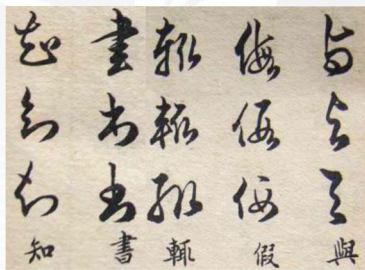 與與與與
假假假假
輒輒輒輒
書書書書
知知知知